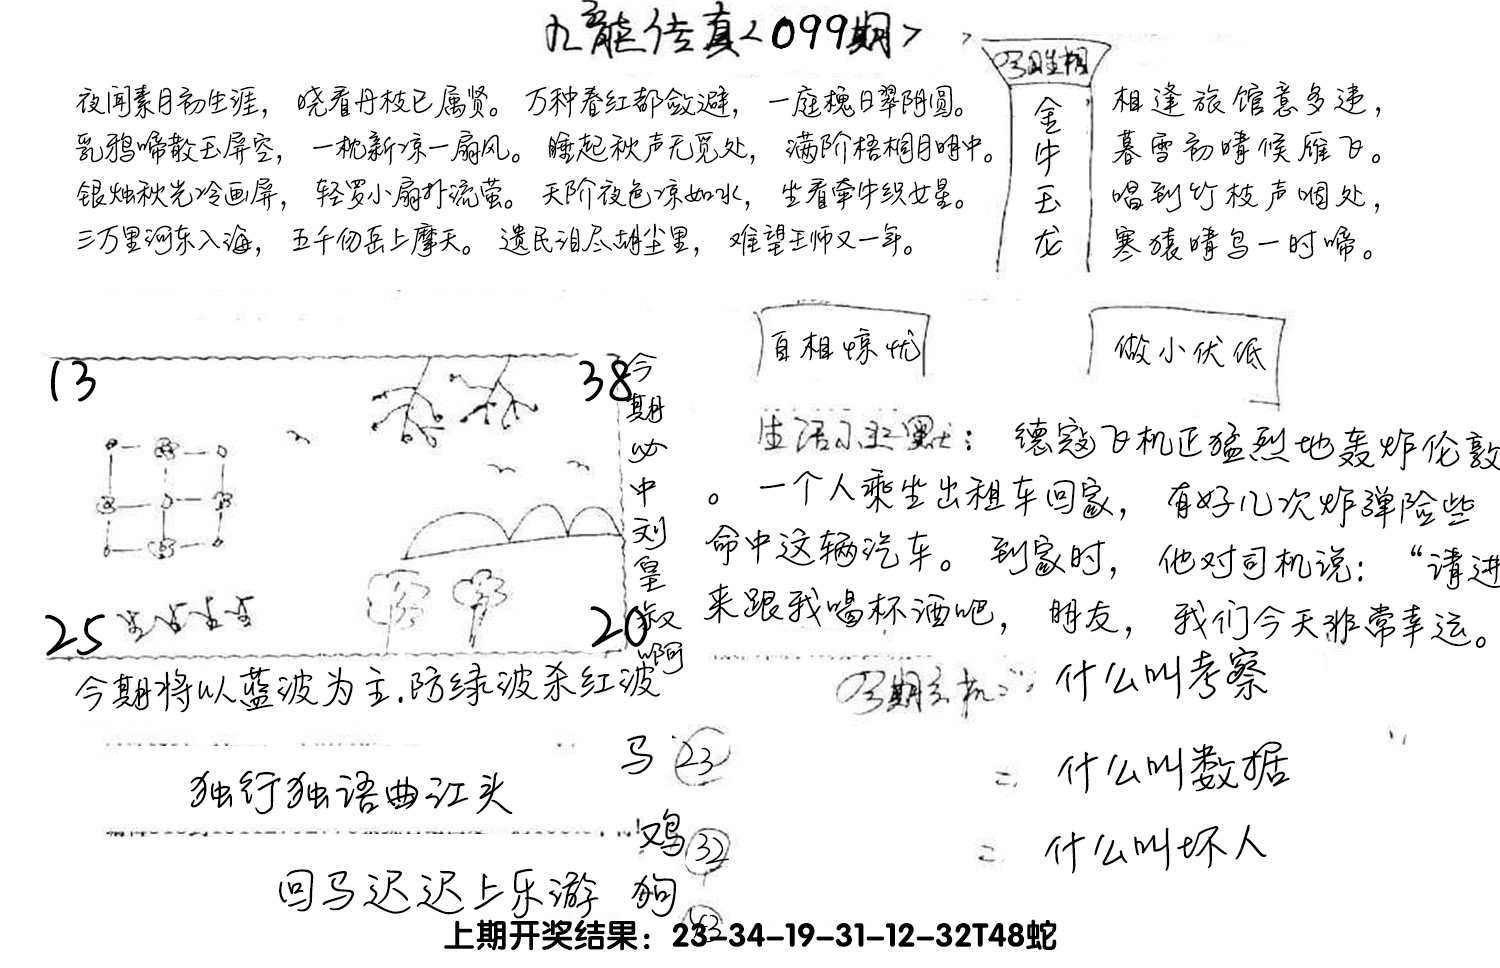 九龙传真<099期>
夜闻素月初生涯，晓看丹枝已属贤。万种春红都敛避，一庭槐日翠阴圆。
乳鸦啼散玉屏空，一枕新凉一扇风。睡起秋声无觅处，满阶梧桐月明中。
银烛秋光冷画屏，轻罗小扇扑流萤。天阶夜色凉如水，坐看牵牛织女星。
三万里河东入海，五千仞岳上摩天。遗民泪尽胡尘里，难望王师又一年。
金牛玉龙
相逢旅馆意多违，
暮雪初晴候雁飞。
唱到竹枝声咽处，
寒猿晴鸟一时啼。
自相惊忧
做小伏低
13
38
25
20
今期必中刘皇叔啊
今期将以蓝波为主.防绿波杀红波
：德寇飞机正猛烈地轰炸伦敦
。一个人乘坐出租车回家，有好几次炸弹险些
命中这辆汽车。到家时，他对司机说：“请进
来跟我喝杯酒吧，朋友，我们今天非常幸运。
什么叫考察
什么叫数据
什么叫坏人
独行独语曲江头
回马迟迟上乐游
马 23
鸡 32
狗
上期开奖结果：23-34-19-31-12-32T48蛇